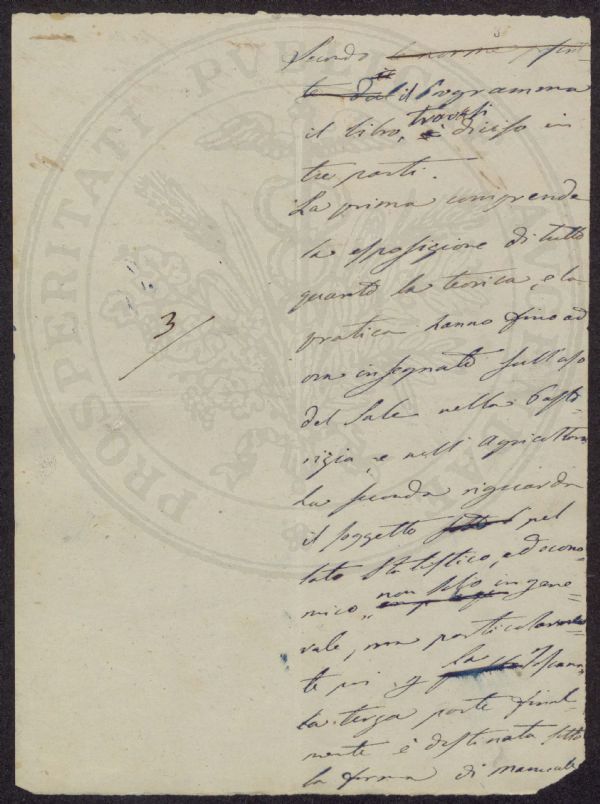 Secondo le norme
il Programma
il libro, trovasi diviso in
tre parti.
La prima comprende
la esposizione di tutto
quanto la teorica, e la
pratica hanno fino ad
ora insegnato sull'uso
del Sale nella Pasto-
rizia, e nell'Agricoltura
La seconda riguarda
il soggetto pel
lato Statistico, ed econo-
mico, non solo in gene-
rale, ma particolarmen-
te poi la Toscana,
La terza parte final-
mente è destinata sotto
la forma di manuale
3/
PROSPERITATI PUBLICAE AUGENDAE